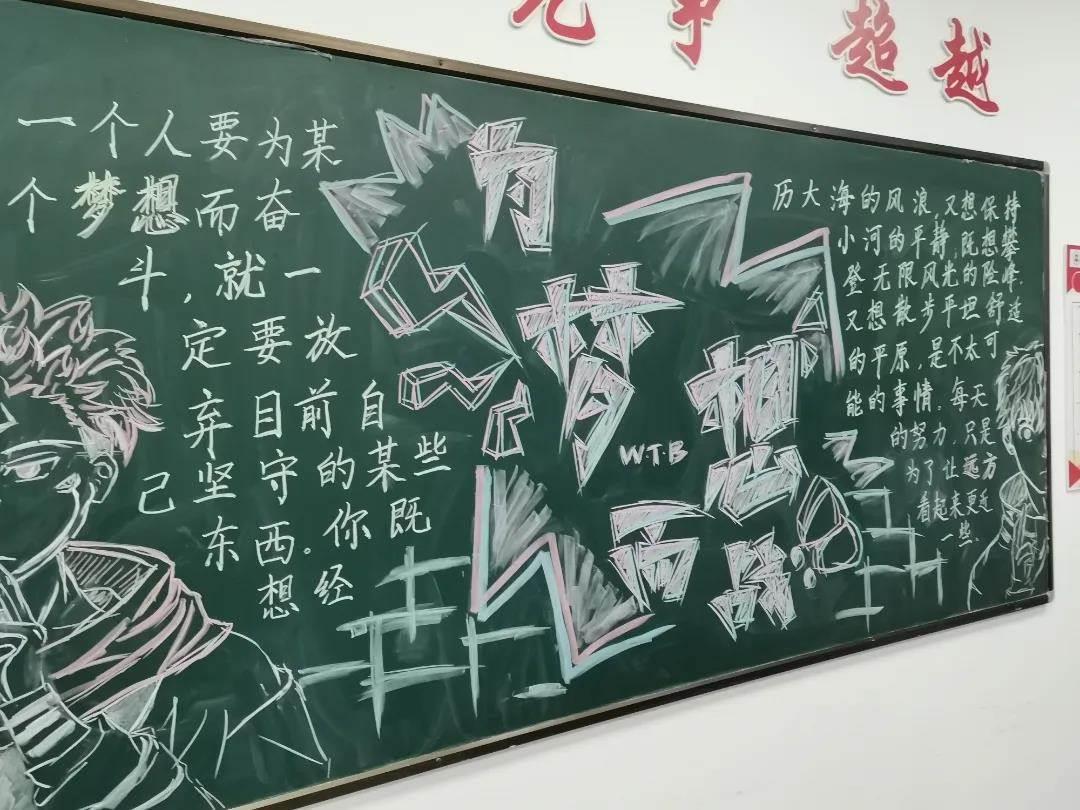 竞争 超越
一个人要为某
个梦想而奋
斗,就一
定要放
弃目前自
己坚守的某些
东西。你既
想经
为
梦想
而战
W.T.B
历大海的风浪,又想保持
小河的平静,既想攀
登无限风光的险峰,
又想散步平坦舒适
的平原,是不太可
能的事情。每天
的努力,只是
为了让远方
看起来更近
一些。